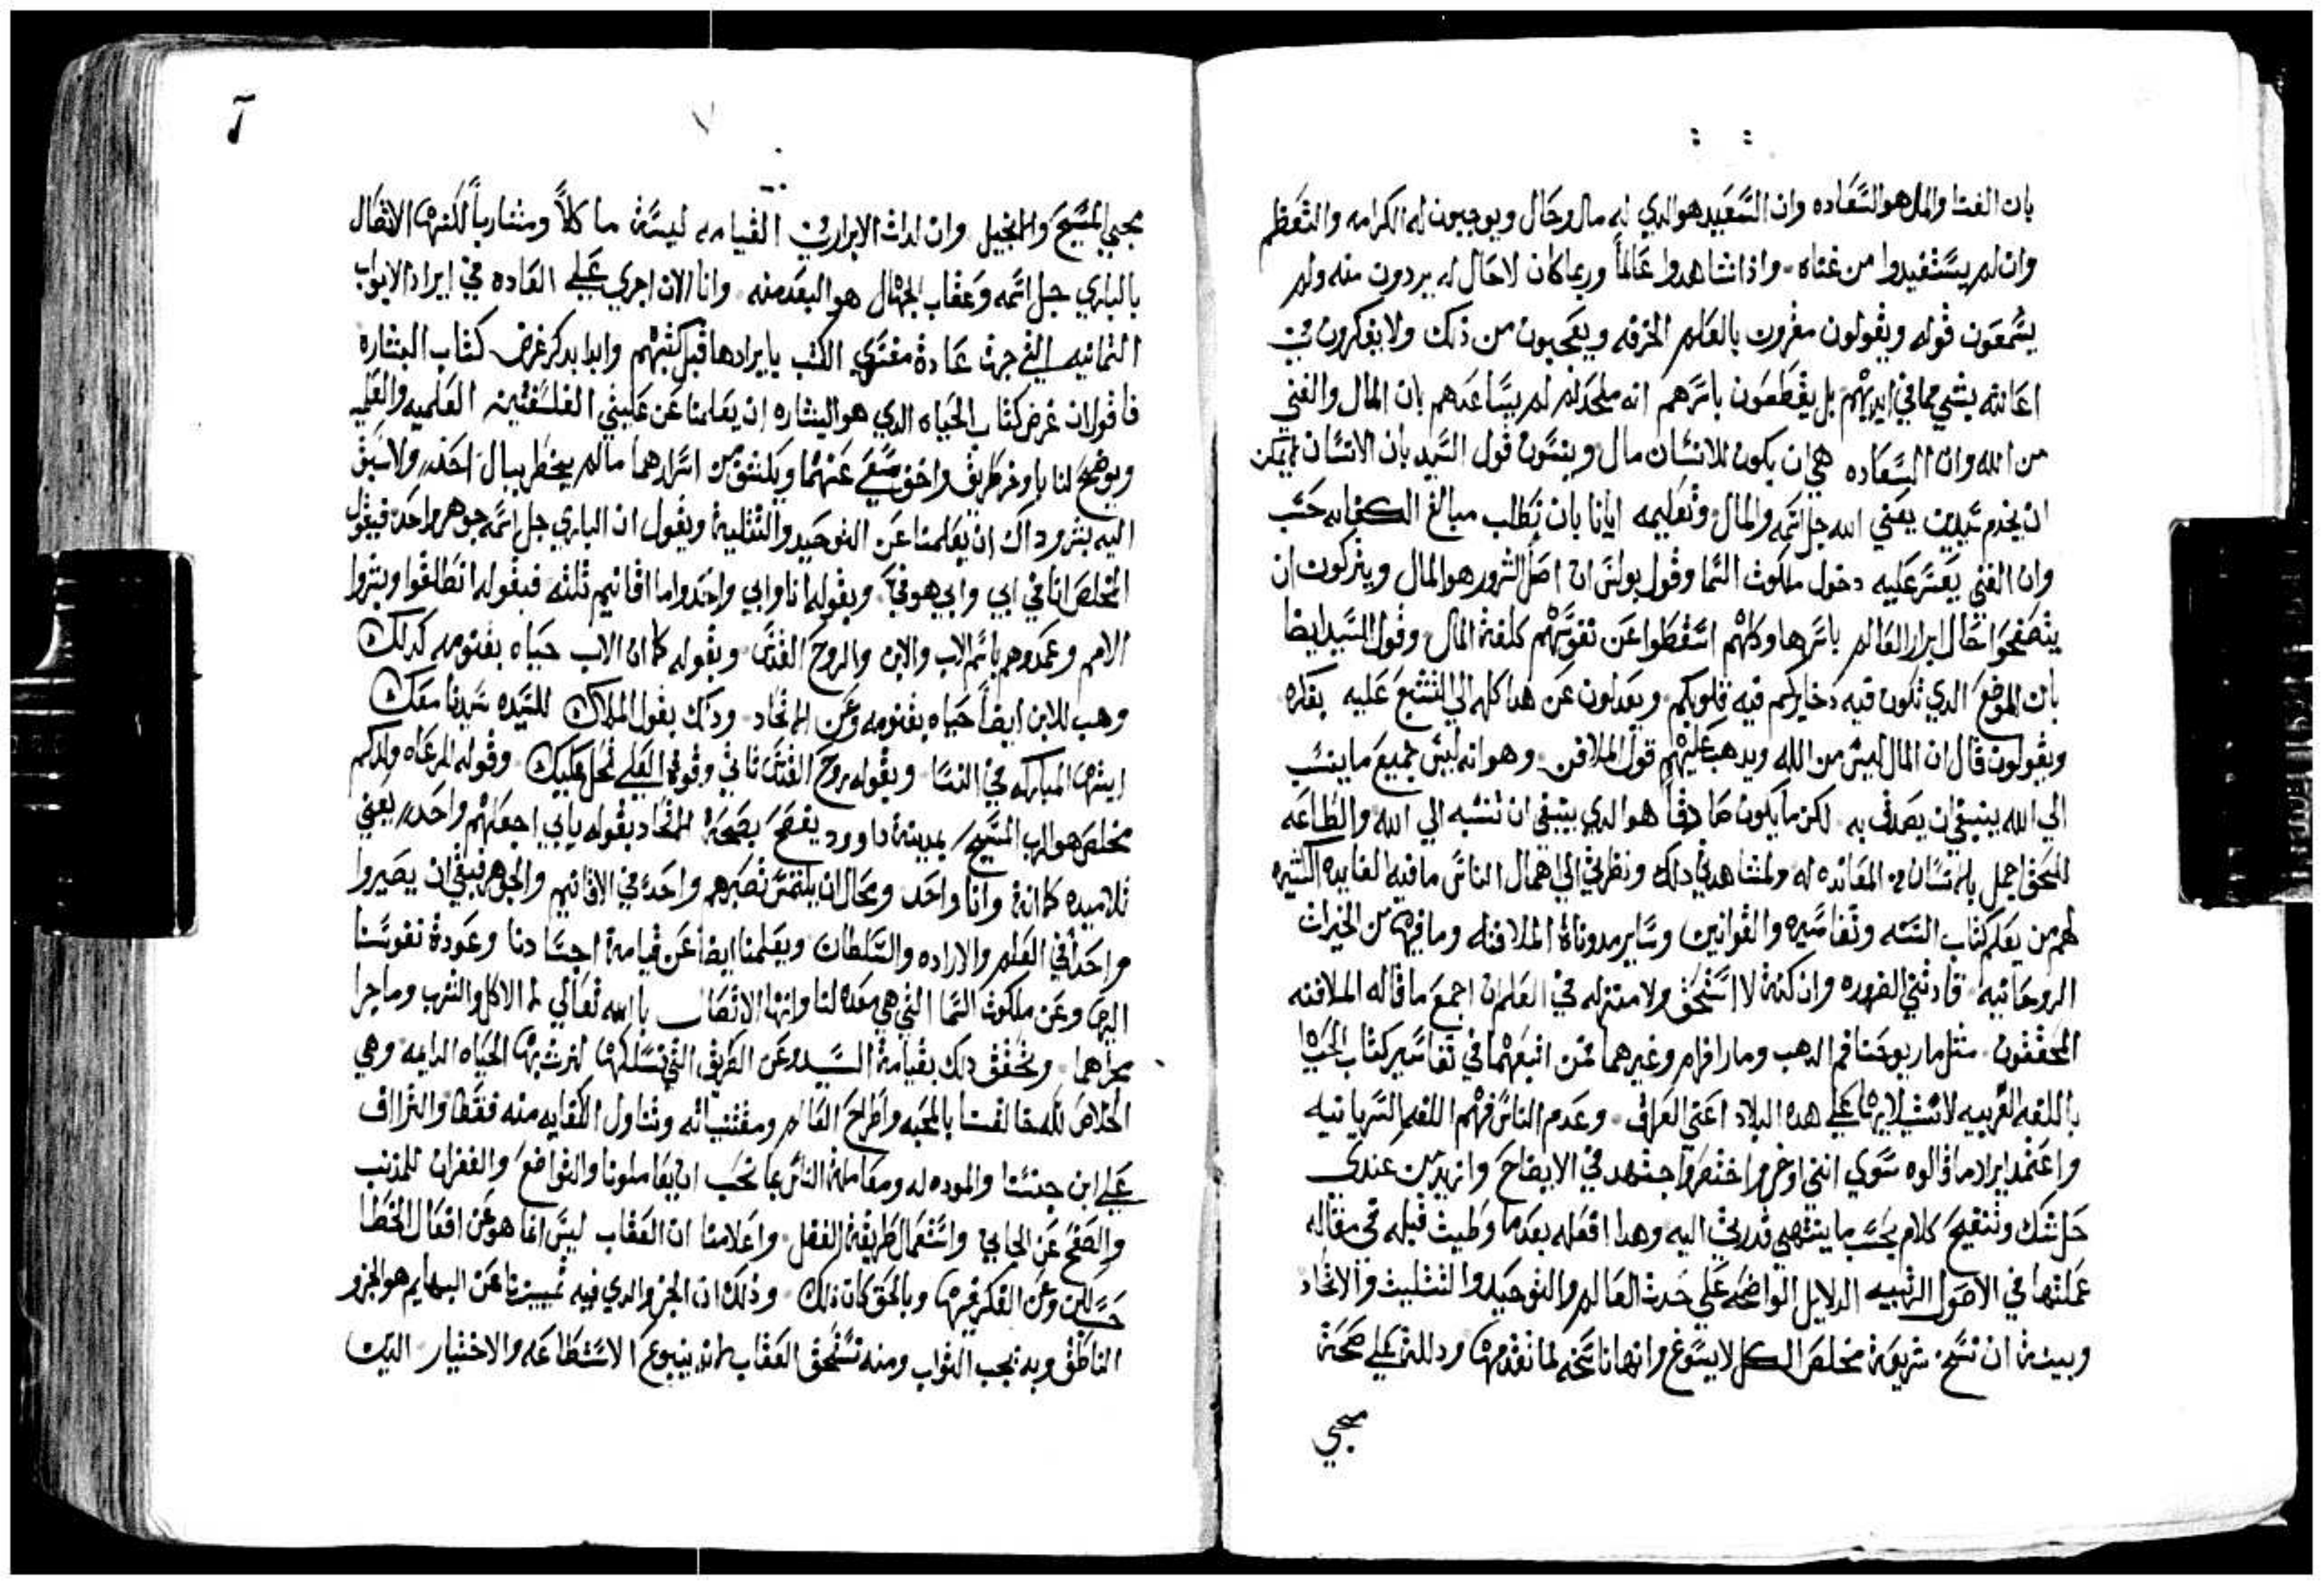 بان الغنا والمال هو السَّعَاده وان السَّعَيد هو الدي له مال وحَال ويوجبون له الكرامه والتعَظم
وان لم يسَتفيدوا من غناه. واذا شاهدوا عَالماً وربما كان لا حَال له يزدرون منه ولم
يسَمعَون قوله ويقولون مغرور بالعَلم الخرفه ويعَجبون من ذلك ولا يفكرون في
اعَانته بشي مما في ايديهم بل يقطعَون باسَرهم انه ملحَد لم يسَاعَدهم بان المال والغني
من الله وان السَعَاده هي ان يكون للانسَان مال وينسَون قول السَيد بان الانسَان لا يمكن
ان يخدم سَيدين يعَني الله جل اسَمه والمال وتعَليمه ايانا بان نطلب مبالغ الكفايه حَسَب
وان الغني يعَسَر عَليه دخول ملكوت السَما وقول بولسَ ان اصَل الشرور هو المال ويتركون ان
يتصَفحَوا حَال ابرار العَالم باسَرها وكلهم اسَقطوا عَن نفوسَهم كلفة المال وقول السَيد ايضا
بان الموضعَ الدي تكون فيه دخايركم فيه قلوبكم ويعَدلون عَن هدا كله الي التشنيعَ عَليه بفكره
ويقولون قال ان المال ليسَ من الله ويدهب عَليهم قول الملافن وهو انه ليسَ جميعَ ما ينسَب
الي الله ينبغي ان يصَدق به لكن ما يكون صَادقاً هو الدي ينبغي ان ننسَبه الي الله والطاعَه
للحَق اجمل بالانسَان من المعَانده له ولمشاهدتي دلك ونظري الي اهمال الناسَ ما فيه الفايده الكثيره
لهم من يعَلم كتاب السَنه وتفاسَيره والقوانين وسَاير مدونات الملافنه وما فيها من الخيرات
الروحَانيه قادتني الضروره وان كنت لا اسَتحَق ولا منزله في العَلم ان اجمعَ ما قاله الملافنه
المحَققون مثل مار يوحَنا فم الدهب ومار افرام وغيرهما ممن اتبعَهما في تفاسَير كتاب الحَياه
باللغه العَربيه لاسَتيلايها عَلي هده البلاد اعَني العَراق وعَدم الناسَ فهم اللغه السَريانيه
واعَتمد ايراد ما قالوه سَوي انني اوخر واختصَر واجتهد في الايضاحَ وازيد من عَندي
حَل شك وتنقيحَ كلام بحَسَب ما ينتهي قدرتي اليه وهدا افعَله بعَدما وطيت قبله في مقاله
عَملتها في الاصَول الدينيه الدلايل الواضحَه عَلي حَدث العَالم والتوحَيد والتتليت والاتحَاد
وبينت ان نسَخ شريعَة مخلصَ الكل لا يسَوغ وانها ناسَخه لما تقدمها ودللت عَلي صَحَة
مجي
٦
مجي المسَيحَ والانجيل وان لدات الابرار في القيامه ليسَت ما كلاً ومشارباً لكنها الاتصَال
بالباري جل اسَمه وعَقاب الجهال هو البعَد منه وانا الان اجري عَلي العَاده في ايراد الابواب
التمانيه التي جرت عَادة مفسَري الكتب بايرادها قبل كتبهم وابدا بدكر غرض كتاب البشاره
فاقول ان غرض كتاب الحَياه الدي هو البشاره ان يعَلمنا عَن غايتي الفلسَفتين العَلميه والعَمليه
ويوضحَ لنا باوخر طريق واخق سَعَي عَنهما ويكشف من اسَرارهما ما لم يخطر ببال احَد ولا سَبق
اليه بشر وداك ان يعَلمنا عَن التوحَيد والتتليت ويقول ان الباري جل اسَمه جوهر واحَد فيقول
المخلصَ انا في ابي وابي هو في. وبقوله انا وابي واحَد واما اقانيم تلته فبقوله انطلقوا وبشروا
الامم وعَمدوهم باسَم الاب والابن والروحَ القدسَ وبقوله كما ان الاب حَياه بقنومه كدلك
وهب للابن ايضاً حَياه بقنومه وعَن الاتحَاد ودلك بقول الملاك للسَيده سَيدنا معَك
ايتها المباركه في النسَا وبقوله روحَ القدسَ تاتي وقوة العَلي تحَل عَليك وقوله للرعَاه ولد لكم
مخلصَ هو الرب المسَيحَ بمدينة داوود يفصَحَ بصَحَة الاتحَاد بقوله يا ابي اجعَلهم واحَد يعَني
تلاميده كما انت وانا واحَد ومحَال ان يلتمسَ تصَيرهم واحَد في الاقانيم والجوهر فبقي ان يصَيروا
واحَداً في العَلم والاراده والسَلطان ويعَلمنا ايضاً عَن قيامة اجسَادنا وعَودة نفوسَنا
اليها وعَن ملكوت السَما التي هي معَده لنا وانها الاتصَال بالله تعَالي لا الاكل والشرب وما جرا
مجراهما وتحَقق دلك بقيامة السَيد وعَن الطريق التي نسَلكها لنرت بها الحَياه الدايمه وهي
اخلاصَ لله خالقنا بالمحَبه واطراحَ العَالم ومقتنياته وتناول الكفايه منه فقط والتراف
عَلي ابن جنسَنا والموده له ومعَاملة الناسَ بما نحَب ان يعَاملونا والتواضعَ والغفران للمذنب
والصَفحَ عَن الجاني واسَتعَمال طريقة الفضل واعَلامنا ان العَقاب ليسَ انما هو عَن افعَال الخطا
حَسَب لكن وعَن الفكر فيها وبالحَق كان ذلك وذلك ان الجزو الدي فيه تمييزنا عَن البهايم هو الجزو
الناطق وبه يجب التواب ومنه نسَتحَق العَقاب لانه ينبوعَ الاسَتطاعَه والاختيار الدين